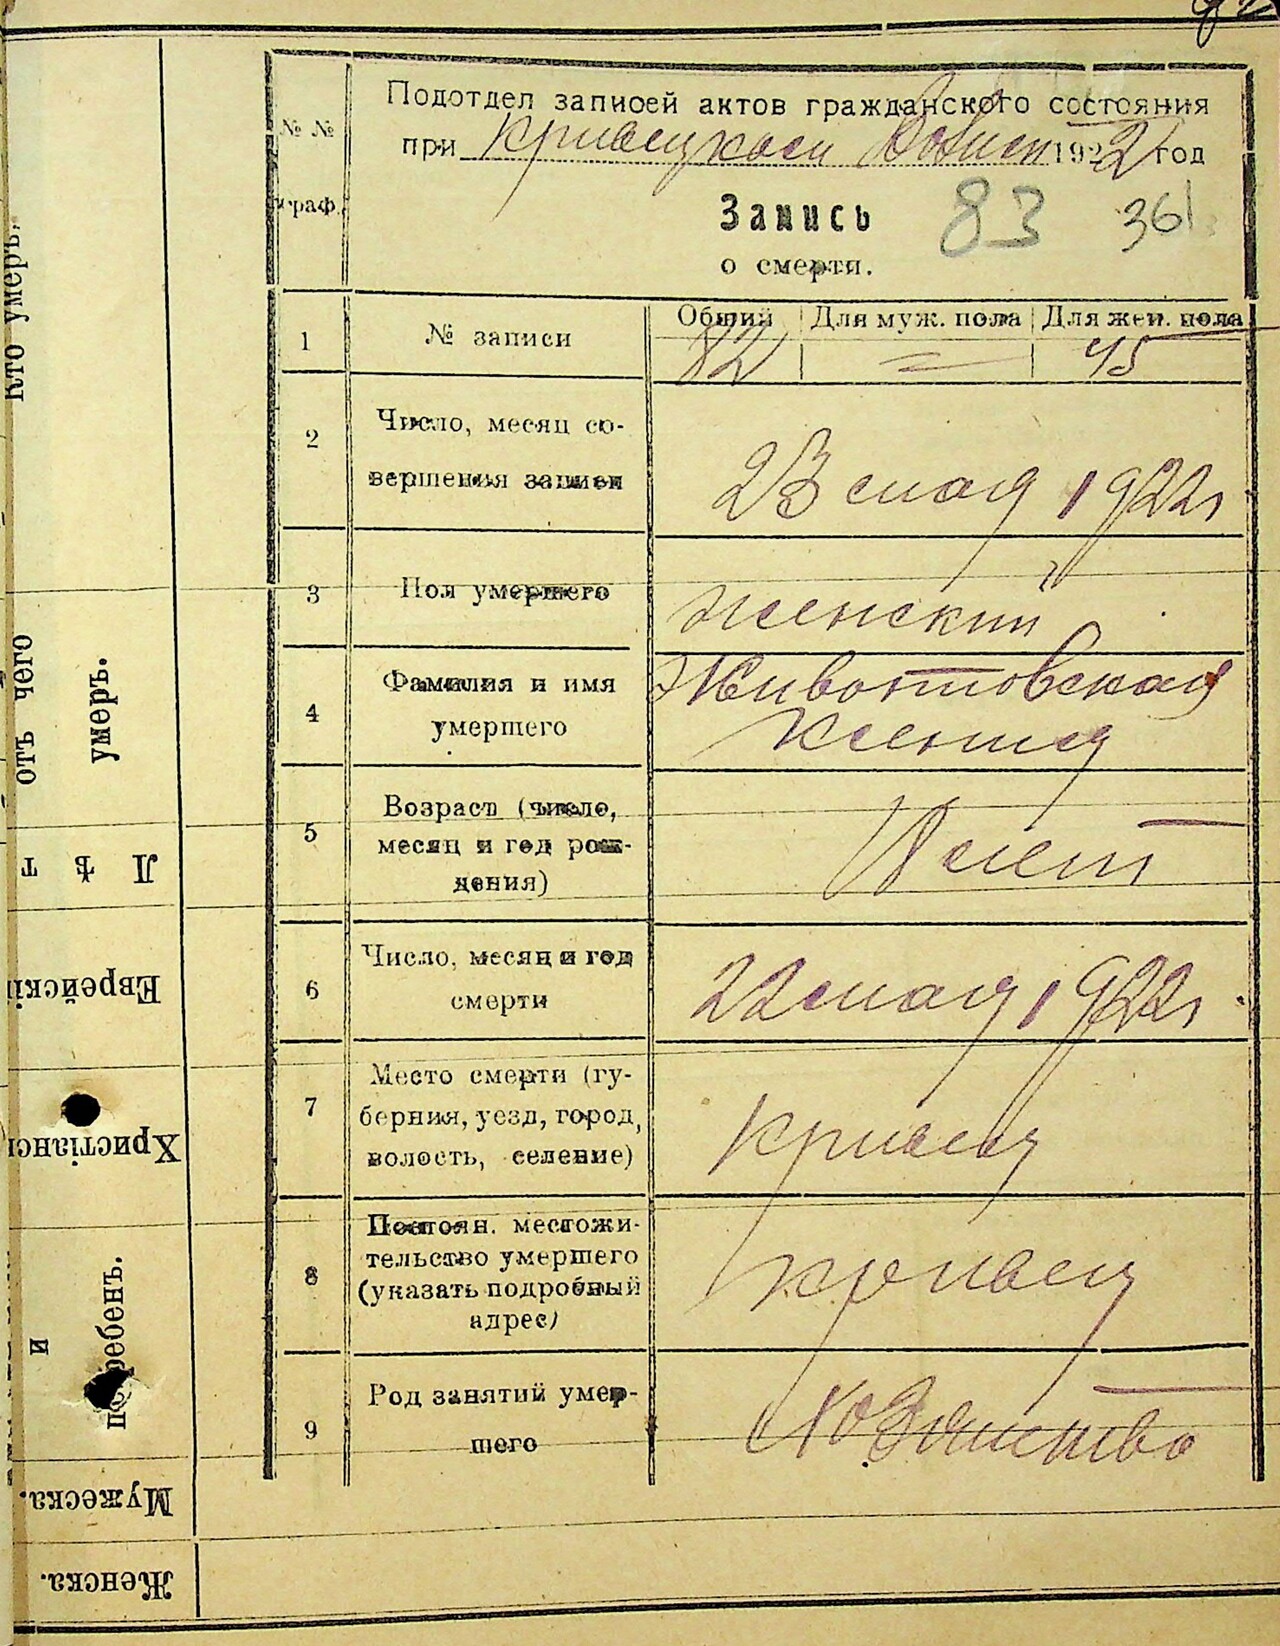 Подотдел записей актов гражданского состояния
при Кривецком 1922 год
№ № граф.
Запись 83 361
о смерти.
1 № записи Общий Для муж. пола Для жен. пола
82 = 45
2 Число, месяц со-
вершения записи 23 мая 1922 г
3 Пол умершего женский
4 Фамилия и имя Животовская
умершего Ксения
5 Возраст (число,
месяц и год рож- лет
дения)
6 Число, месяц и год
смерти 22 мая 1922 г.
7 Место смерти (гу-
берния, уезд, город, Кривец
волость, селение)
8 Постоян. местожи-
тельство умершего Кривец
(указать подробный
адрес)
9 Род занятий умер-
шего
Кто умеръ.
отъ чего
умеръ.
Лѣт
Еврейскі
Христіанс
и
погребенъ.
Мужеска.
Женска.